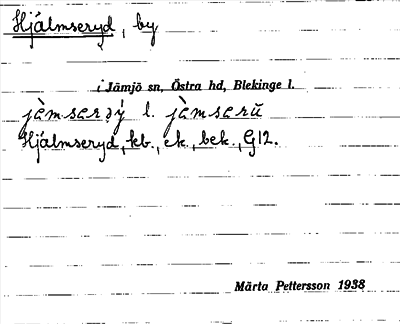 Hjälmseryd, by
i Jämjö sn, Östra hd, Blekinge l.
jàmsərý l. jàmsərŭ
Hjälmseryd, kb., ek., bek., G12.
Märta Pettersson 1938